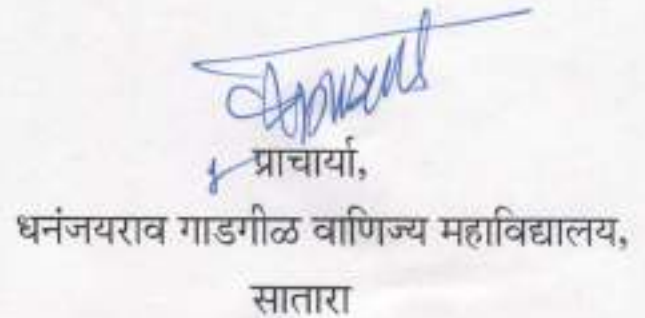 प्राचार्या,
धनंजयराव गाडगीळ वाणिज्य महाविद्यालय,
सातारा